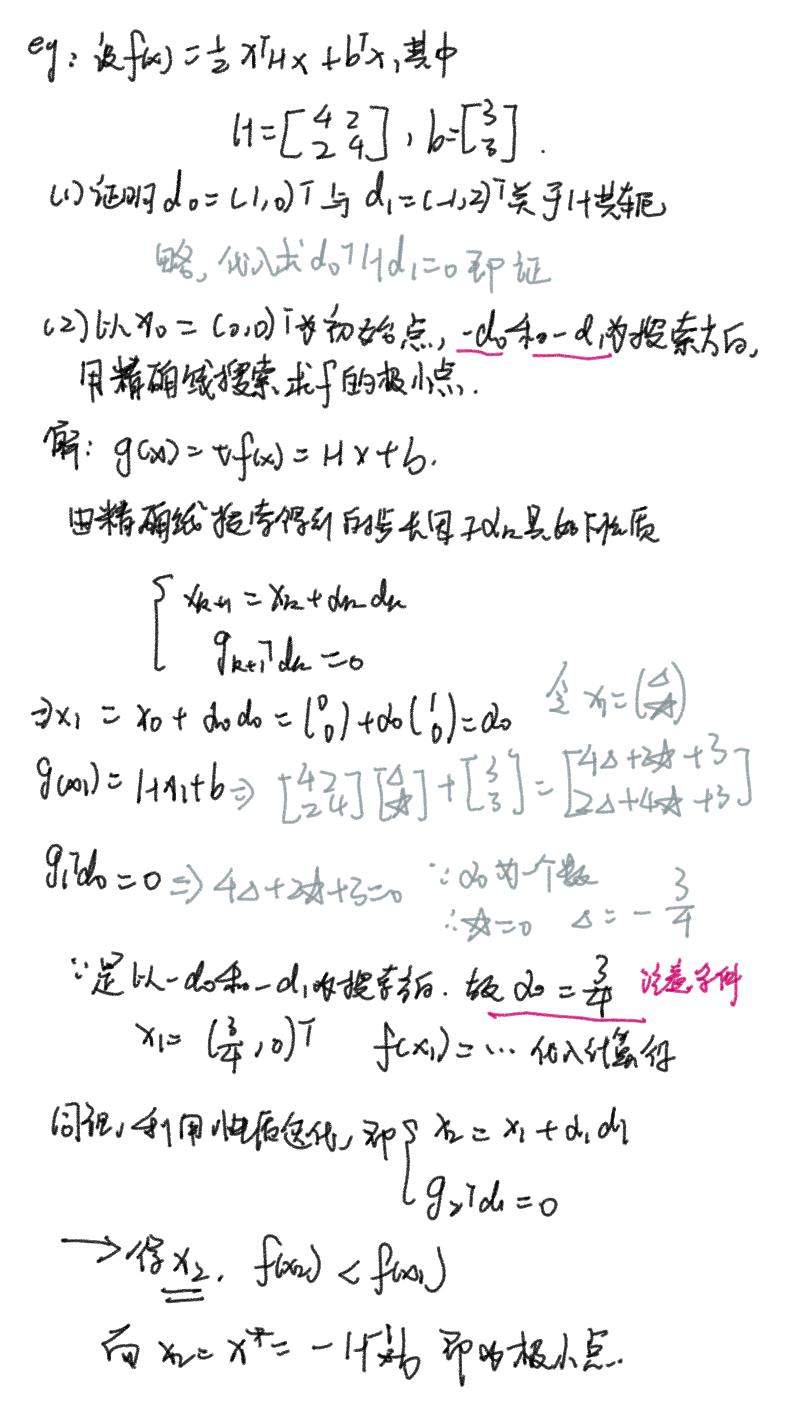 eg：设f(x)=½xᵀHx+bᵀx,其中
H=[4 2; 2 4], b=[3; 3].
(1)证明d₀=(1,0)ᵀ与d₁=(-1,2)ᵀ关于H共轭
略,代入式d₀ᵀHd₁=0即证
(2)以x₀=(0,0)ᵀ为初始点,-d₀和-d₁为搜索方向,
用精确线搜索求f的极小点.
解：g(x)=∇f(x)=Hx+b.
由精确线搜索得到的步长因子αₖ具如下性质
{ xₖ₊₁=xₖ+αₖdₖ
gₖ₊₁ᵀdₖ=0
⇒x₁=x₀+α₀d₀=(0; 0)+α₀(1; 0)=α₀ 令x₁=(△; ☆)
g(x₁)=Hx₁+b⇒[4 2; 2 4][△; ☆]+[3; 3]=[4△+2☆+3; 2△+4☆+3]
g₁ᵀd₀=0⇒4△+2☆+3=0 ∵α₀为一个数
∴☆=0 △=-3/4
∵是以-d₀和-d₁为搜索方向.故α₀=3/4 注意条件
x₁=(3/4,0)ᵀ f(x₁)=…代入计算得
同理,利用性质迭代,即{ x₂=x₁+α₁d₁
g₂ᵀd₁=0
→得x₂, f(x₂)<f(x₁)
而x₂=x*=-H⁻¹b 即为极小点.